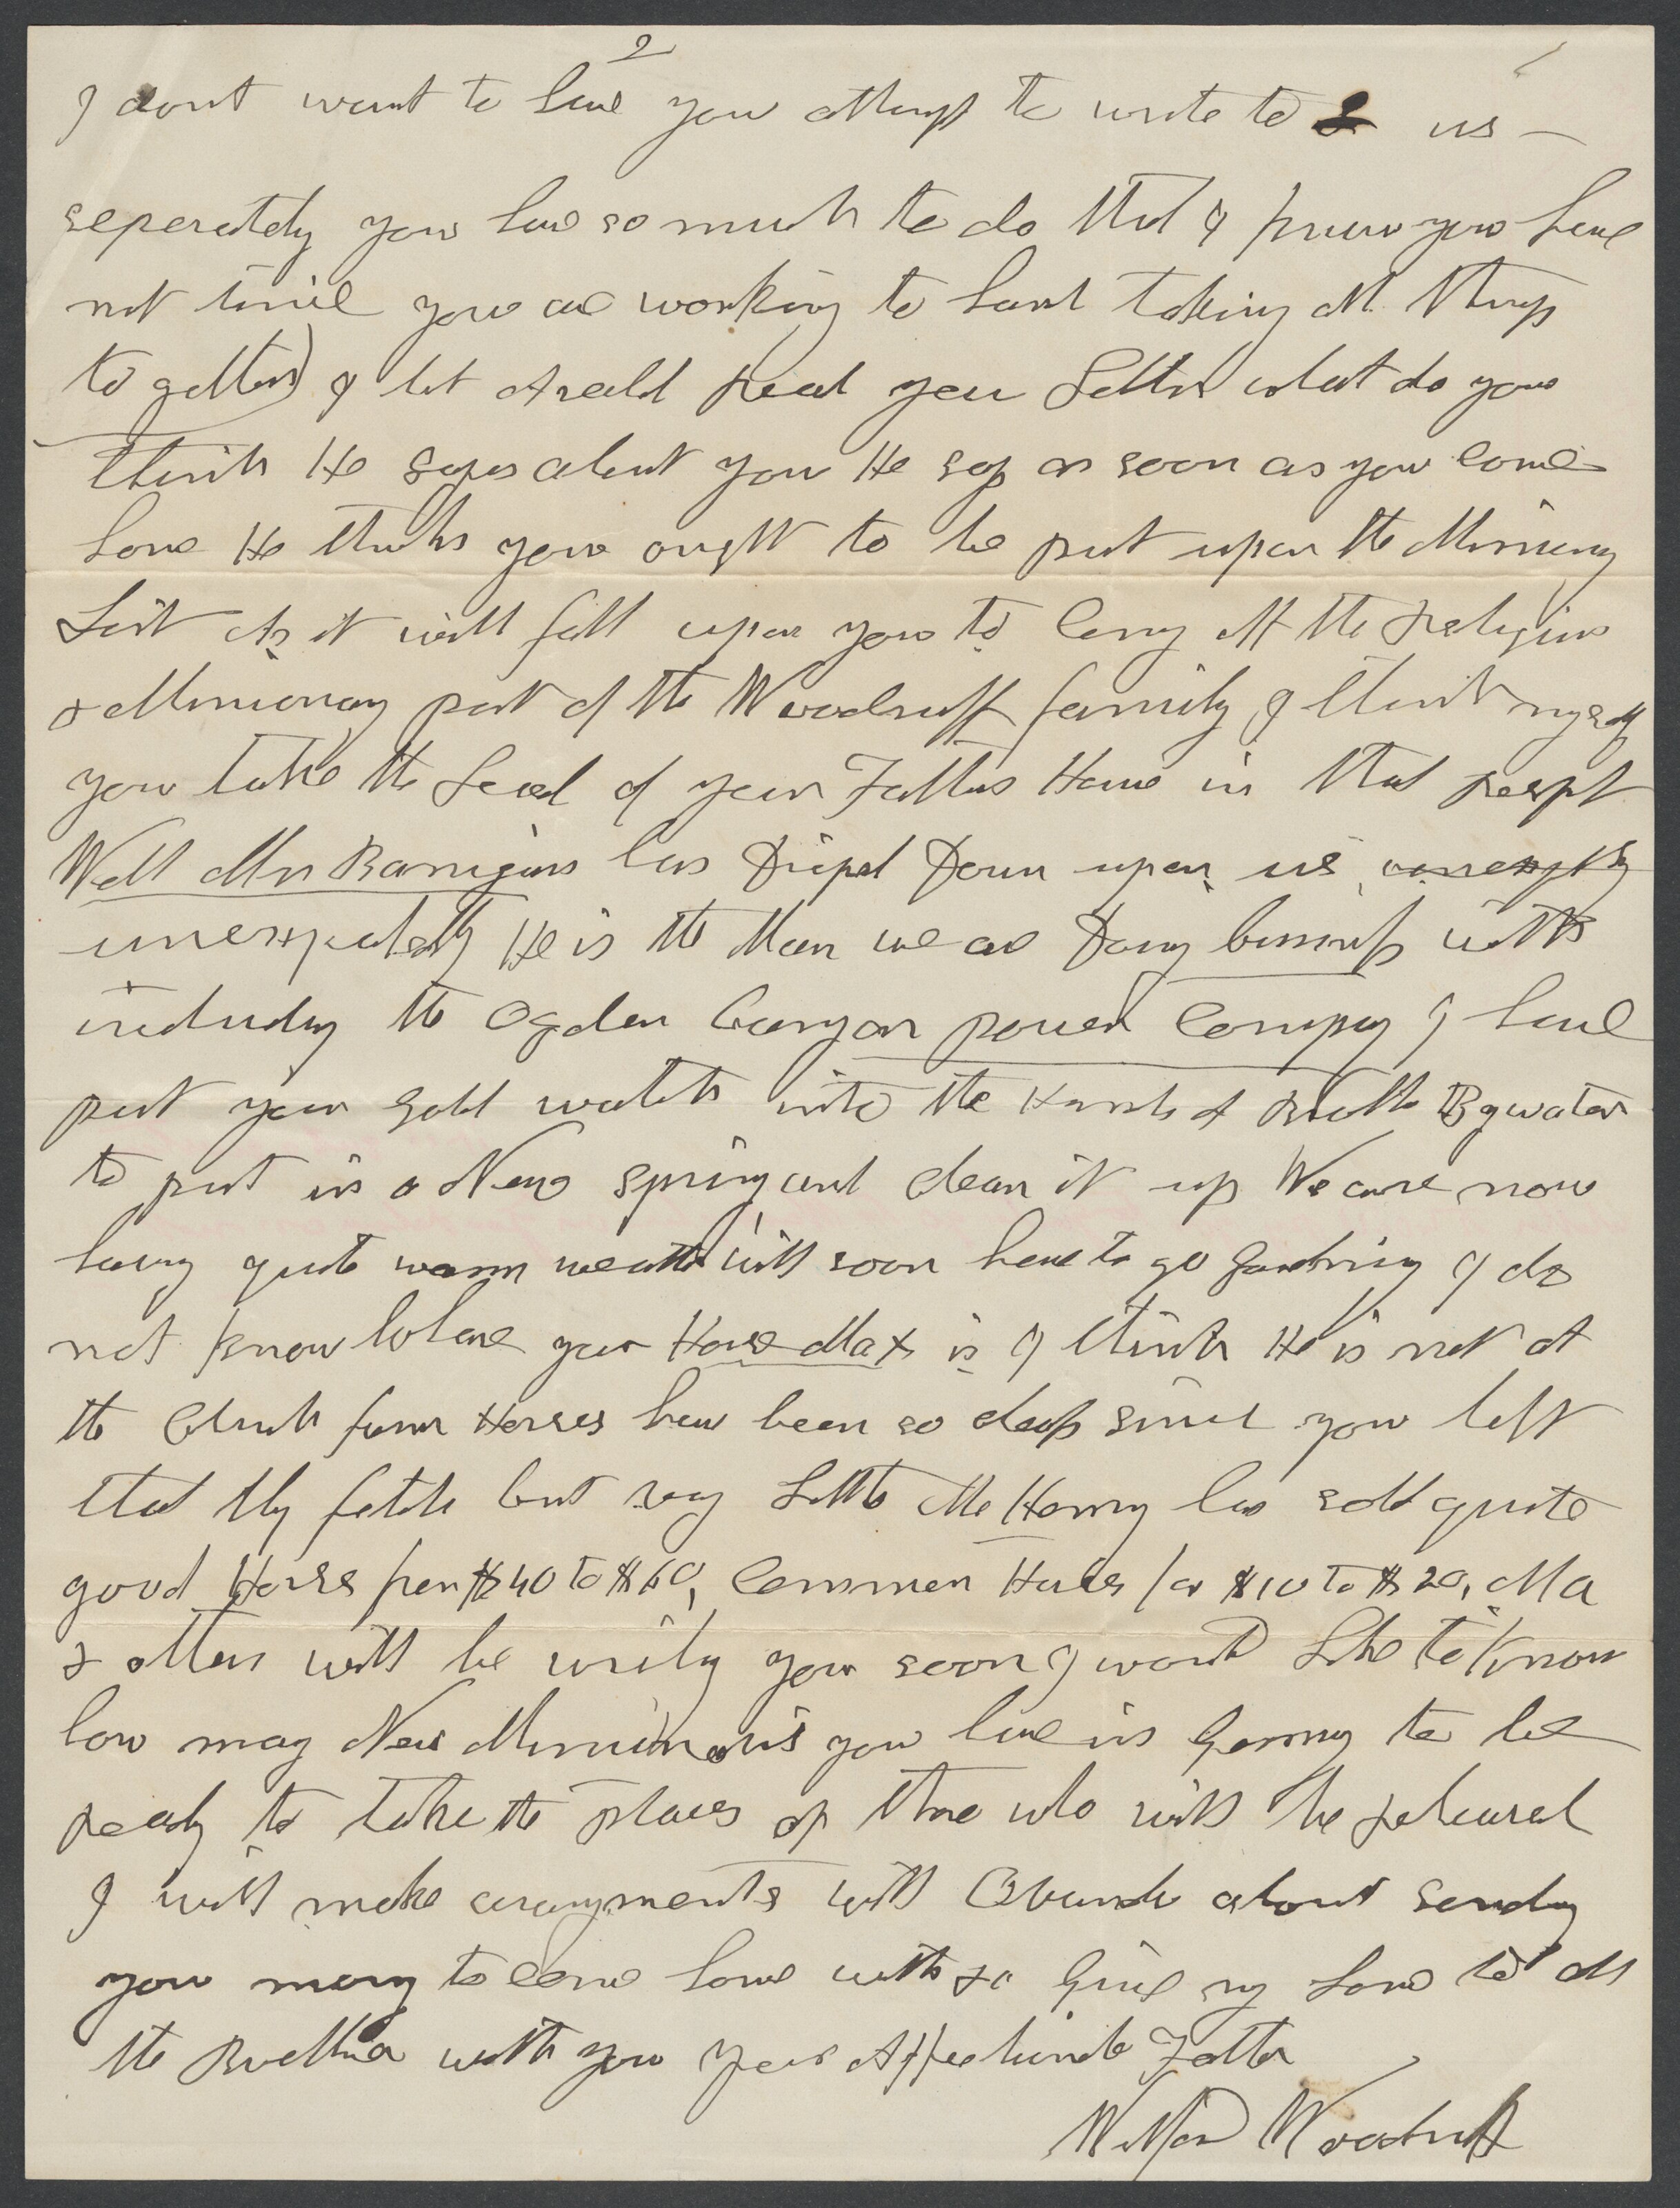 2
I dont want to have you attempt to write to us
seperately you have so much to do that I know you have
not time you are working to hard taking all things
together) I let Asahel read your Letter what do you
think He says about you He says as soon as you come
home He thinks you ought to be put upon the Missionary
List As it will fall upon you to Carry off the Religious
& Missionary part of the Woodruff family I think myself
you take the Lead of your Fathers House in that respet
Well Mr Banigans has Dripd Down upon us
unexpetedly He is the Man we are Doing business with
includig the Ogden Canyon power Compay I have
put your gold watch into the Hands of Brother Bywater
to put in a New spring and Clean it up We are now
having quite warm weather will soon have to go gardning I do
not know Whare your Horse Max is I think He is not at
the Church farm Horses have been so cheap since you left
that they fetch but vary Little McHenry has sold quite
good Horses from $40 to $60, Common Horses for $10 to $20, Ma
& others will be writig you soon I would Like to know
how many New Missionaris you have in Germny to be
ready to take the places of those who will be released
I will make arangments with about sendig
you mony to come home with &c Give my Love to all
the Brethren with you Your Affectionate Father
Wilford Woodruff